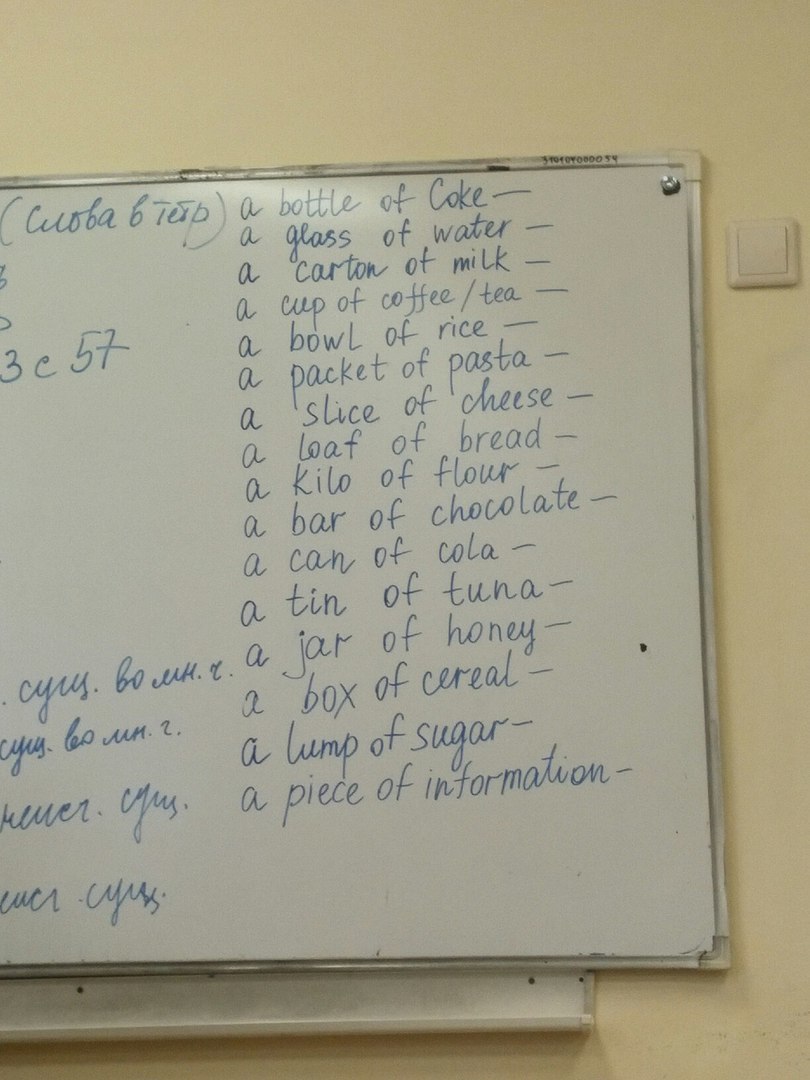 31910400054
(слова в тетр)
3 с 57
a bottle of Coke —
a glass of water —
a carton of milk —
a cup of coffee / tea —
a bowl of rice —
a packet of pasta —
a slice of cheese —
a loaf of bread —
a kilo of flour —
a bar of chocolate —
a can of cola —
a tin of tuna —
a jar of honey —
a box of cereal —
a lump of sugar —
a piece of information —
. сущ. во мн. ч.
сущ. во мн. ч.
неисч. сущ.
сущ.